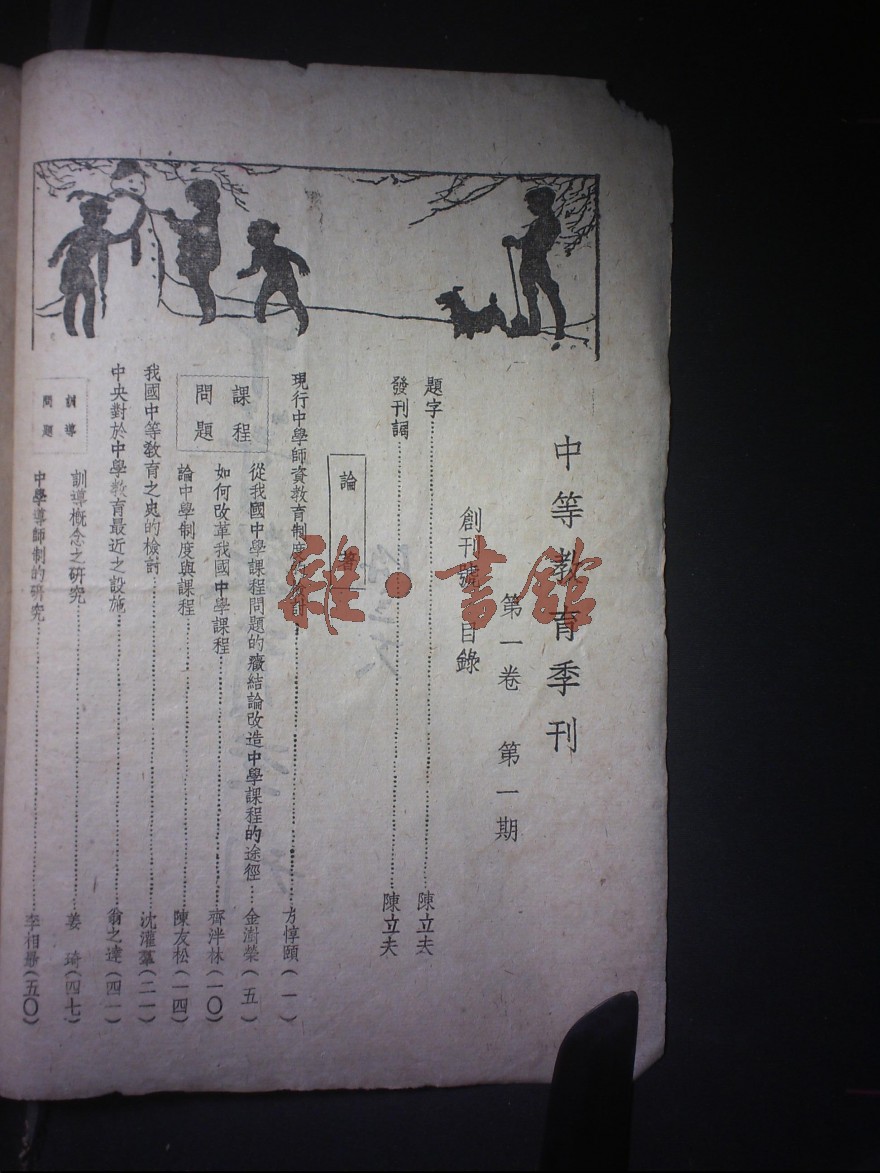 中等教育季刊
第一卷 第一期
創刊號目錄
題字……陳立夫
發刊詞……陳立夫
論著
現行中學師資教育制度的檢討……方惇頤(一)
課程問題
從我國中學課程問題的癥結論改造中學課程的途徑……金澍榮(五)
如何改革我國中學課程……齊泮林(一〇)
論中學制度與課程……陳友松(一四)
我國中等教育之史的檢討……沈灌羣(二一)
中央對於中學教育最近之設施……翁之達(四一)
訓導問題
訓導概念之研究……姜 琦(四七)
中學導師制的研究……李相勗(五〇)
雜·書館